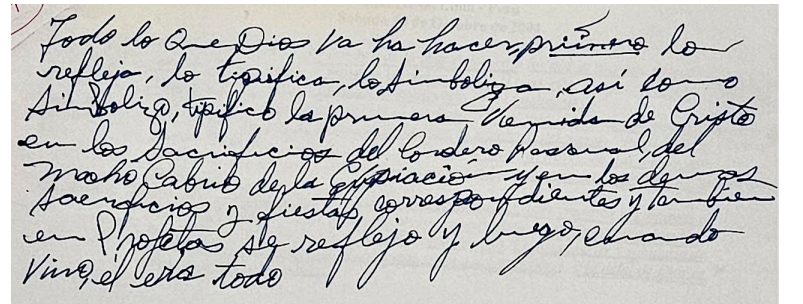 Todo lo Que Dios va ha hacer, primero lo
refleja, lo tipifica, lo simboliza, así como
Simbolizo, tipifico la primera Venida de Cristo
en los Sacrificios del Cordero Pascual, del
Macho Cabrio de la Expiación y en los demas
Sacrificios y fiestas correspondientes y tambien
en Profetas se reflejo y luego, cuando
Vino, él era todo